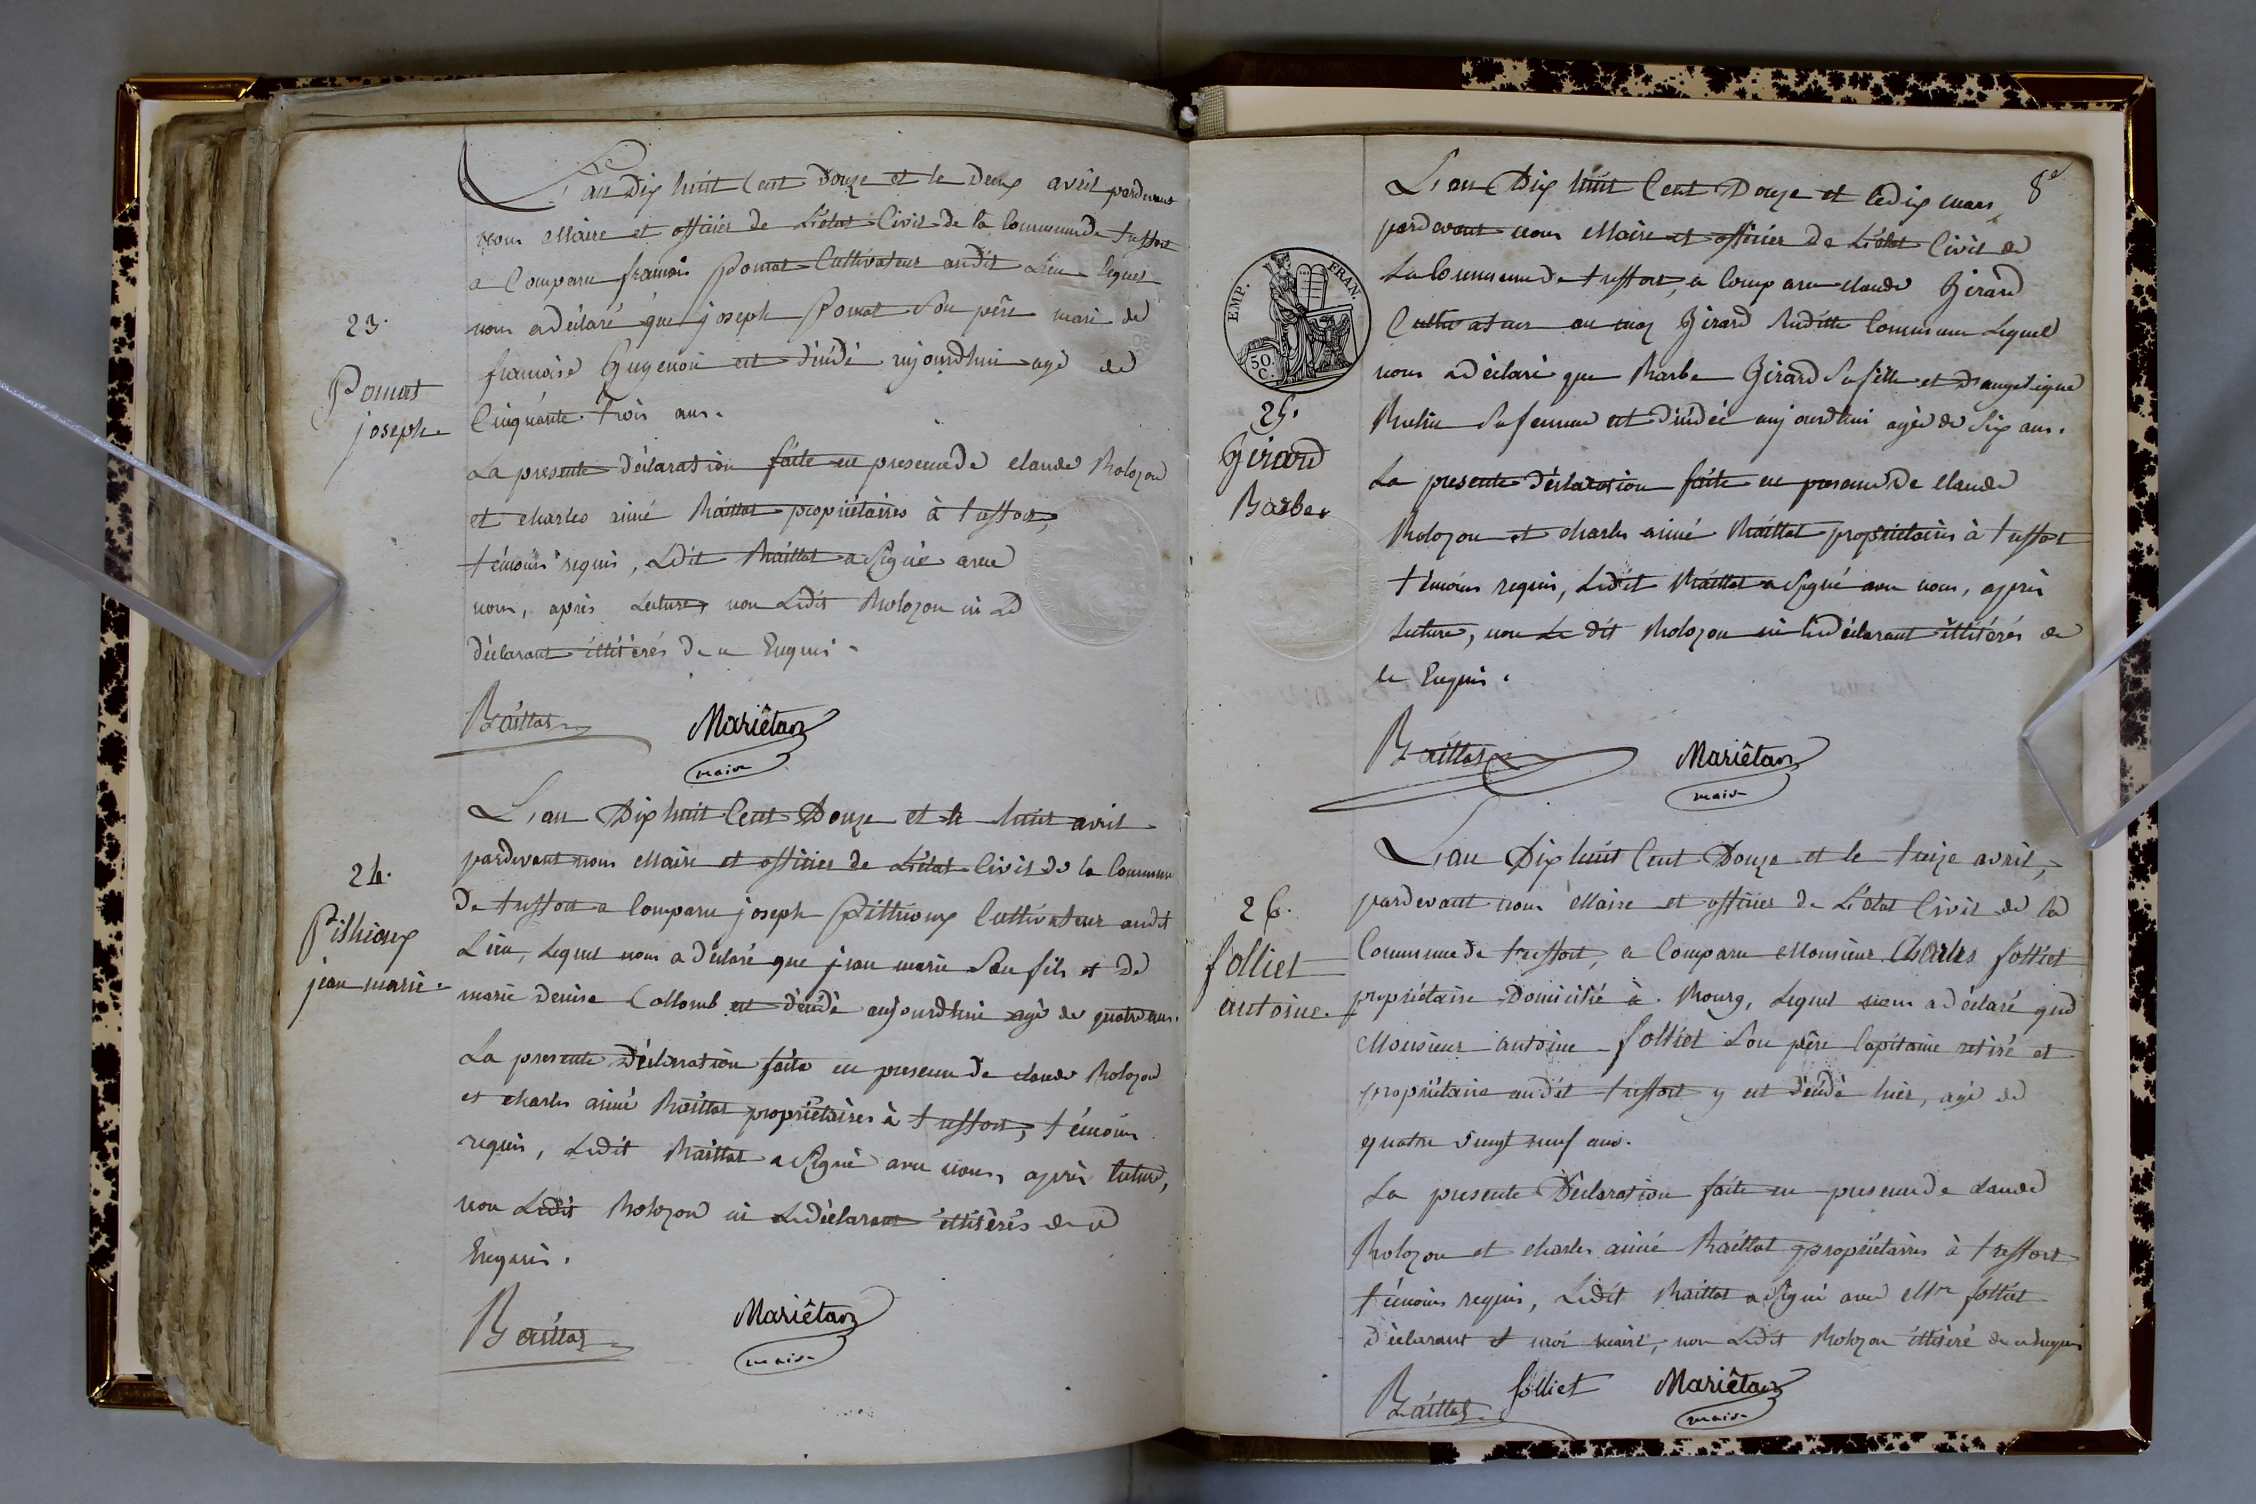 L'an Dix huit Cent Douze et le Deux avril pardevant
nous Maire et officier de L'état Civil de la Commune de treffort
a Comparu francois Pomat Cultivateur audit Lieu lequel
23.
nous a déclaré que joseph Pomat Son père mari de
Pomat
joseph
francoise est décédé aujourdhui agé de
Cinquante Trois ans.
La presente déclaration faite en presence de claude Bolozon
et charles aimé Baillat propriétaires à treffort,
témoins requis, Ledit Baillat a Signé avec
nous, après Lecture, non Ledit Bolozon ni Le
déclarant illitérés de ce Enquis.
Baillat
Mariêtan
maire
L'an Dix huit Cent Douze et le huit avril
pardevant nous Maire et officier de L'état Civil de la Commune
24.
de treffort a Comparu joseph Pithioux Cultivateur audit
Pithioux
jean marie.
Lieu, Lequel nous a déclaré que jean marie Son fils et de
marie denise Collomb est décédé aujourdhui agé de quatre ans.
La presente déclaration faite en presence de claude Bolozon
et charles aimé Baillat propriétaires à treffort, témoins
requis, Ledit Baillat a Signé avec nous, après lecture,
non Ledit Bolozon ni Le déclarant illitérés de ce
Enquis.
Baillat
Mariêtan
maire
8e
L'an Dix huit Cent Douze et le dix mars
pardevant nous Maire et officier de L'état Civil de
La Commune de treffort, a Comparu claude Girard
EMP. FRAN.
50.
C.
Cultivateur au Girard Susditte Commune Lequel
nous a déclaré que Barbe Girard Sa fille et D'angelique
25.
Girard
Barbe.
Sa femme est décédée aujourdhui agée de Six ans.
La presente déclaration faite en presence de claude
Bolozon et charles aimé Baillat propriétaires à treffort
témoins requis, Ledit Baillat a Signé avec nous, après
Lecture, non Le dit Bolozon ni Le déclarant illitérés de
ce Enquis.
Baillat
Mariêtan
maire
L'an Dix huit Cent Douze et le treize avril,
pardevant nous Maire et officier de L'état Civil de la
26.
folliet
antoine.
Commune de treffort, a Comparu Monsieur Charles folliet
propriétaire Domicilié à Bourg, Lequel nous a déclaré que
Monsieur antoine folliet Son père Capitaine retiré et
propriétaire audit treffort y est décédé hier, agé de
quatre vingt neuf ans.
La presente Déclaration faite en presence de claude
Bolozon et charles aimé Baillat propriétaires à treffort
témoins requis, Ledit Baillat a Signé avec Mr folliet
déclarant et moi maire, non Ledit Bolozon illitéré de ce enquis
Baillat
folliet
Mariêtan
maire